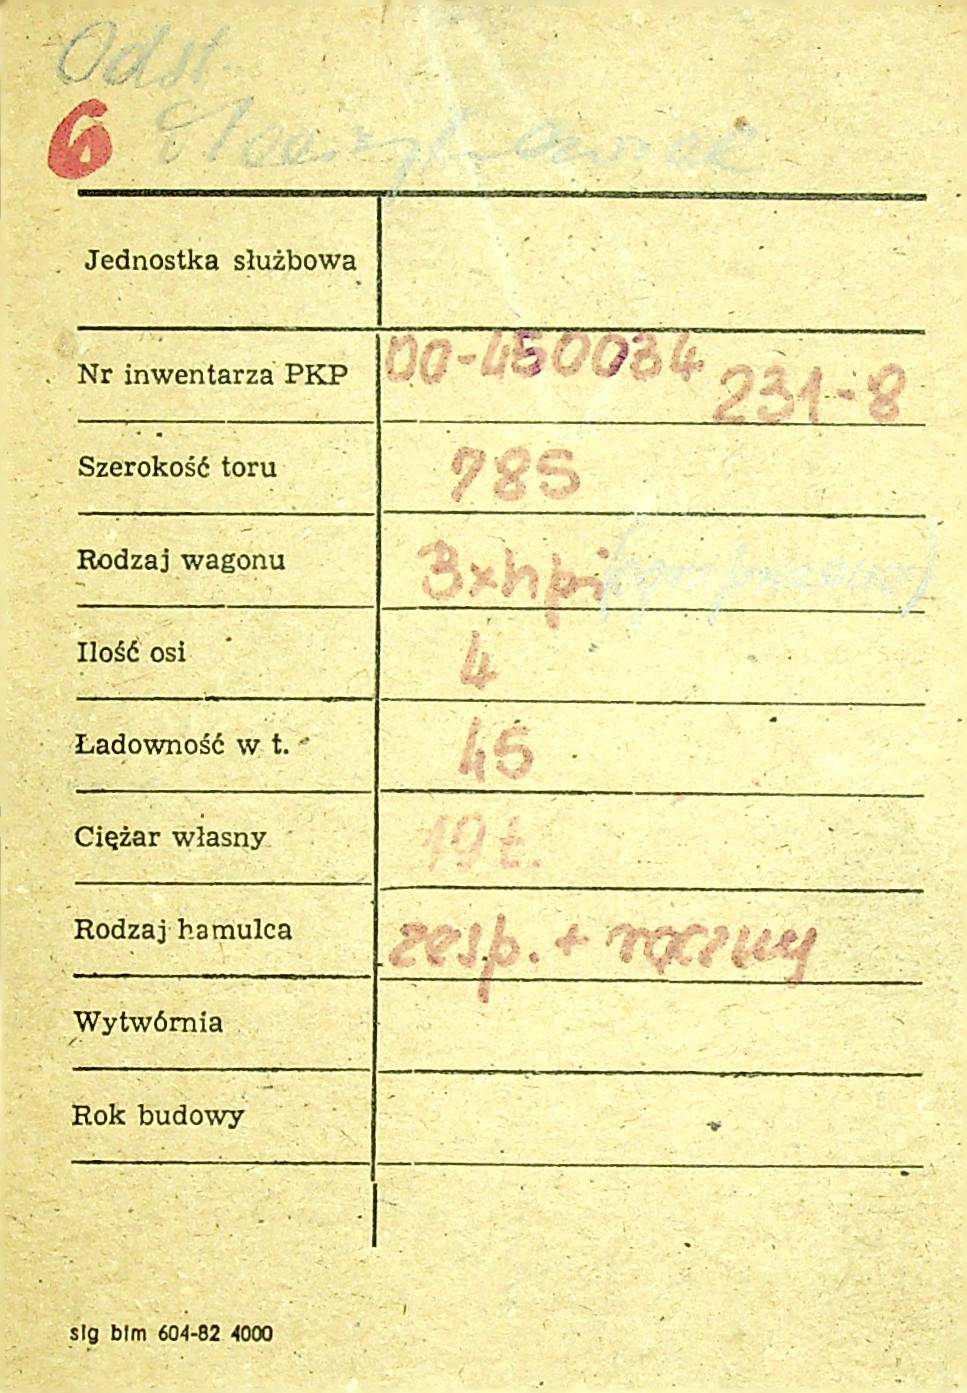 Odst.
6
Jednostka służbowa
Nr inwentarza PKP 00-450034 231-8
Szerokość toru 785
Rodzaj wagonu 3xhpi
Ilość osi 4
Ładowność w t. 45
Ciężar własny 19 t.
Rodzaj hamulca zesp. + ręczny
Wytwórnia
Rok budowy
sig bim 604-82 4000